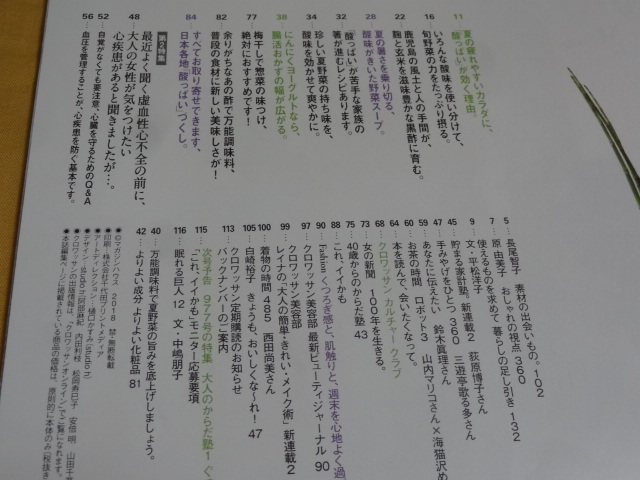 11 夏の疲れやすいカラダに、
「酸っぱい」が効く理由。
16 いろんな酸味を使い分けて、
旬野菜の力をたっぷり摂る。
22 鹿児島の風土と人の手間が、
麹と玄米を滋味豊かな黒酢に育む。
28 夏の暑さを乗り切る、
酸味がきいた野菜スープ。
32 “酸っぱい”が苦手な家族の
箸が進むレシピあります。
34 珍しい夏野菜の持ち味を、
酸味を効かせて爽やかに。
38 にんにくヨーグルトなら、
腸活おかずの幅が広がる。
77 梅干しで惣菜の味つけ、
絶対におすすめです!
82 余りがちなあの酢で万能調味料、
普段の食材に新しい美味しさが!
84 すべてお取り寄せできます、
日本各地「酸っぱい」づくし。
第2特集
48 最近よく聞く虚血性心不全の前に、
大人の女性が気をつけたい
心疾患があると聞きましたが…。
52 自覚がなくても要注意、心臓を守るためのQ&A
56 血圧を管理することが、心疾患を防ぐ基本です。
5 長尾智子 素材の出会いもの。102
7 原由美子 おしゃれの視点 360
使えるものを求めて 暮らしの足し引き 132
9 文・平松洋子
45 貯まる家計塾。新連載2 荻原博子さん
47 手みやげをひとつ 360 三遊亭歌る多さん
59 あなたに伝えたい 鈴木眞理さん
60 お茶の時間 ロボット3 山内マリコさん×海猫沢め
64 本を読んで、会いたくなって。
68 クロワッサン カルチャークラブ
73 女の新聞 100年を生きる。
75 40歳からのからだ塾 43
88 これ、イイかも
90 Fashion くつろぎ感と、肌触りと、週末を心地よく過
97 クロワッサン美容部 最新ビューティジャーナル 90
99 クロワッサン美容部
レイナの「大人の簡単・きれい・メイク術」 新連載2
100 着物の時間 485 西田尚美さん
105 白崎裕子 きょうも、おいしくな〜れ! 47
113 クロワッサン定期購読のお知らせ
バックナンバーのご案内
115 次号予告 977号の特集 大人のからだ塾1ぐっ
「これ、イイかも」モニター応募要項
116 眠れる巨人12 文・中嶋朋子
40 万能調味料で夏野菜の旨みを底上げしましょう。
42 よりよい肌 よりよい化粧品 81
©マガジンハウス 2018 禁・無断転載
●印刷=株式会社千代田プリントメディア
●アートディレクション=樋口かすみ(studio n)